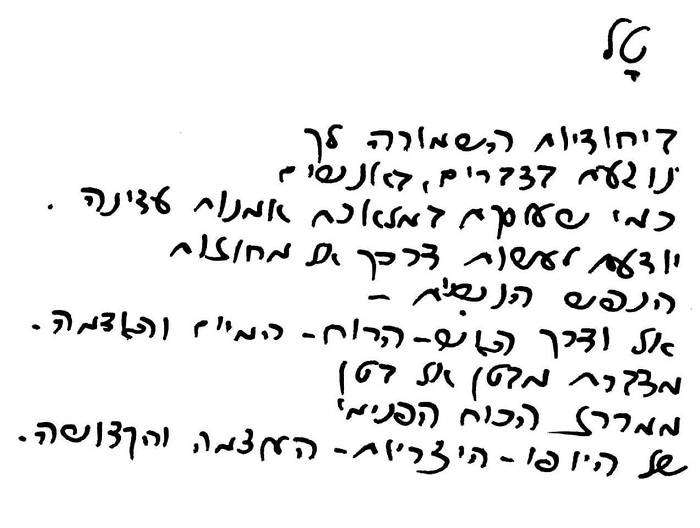 טָל
ביחודיות השמורה לך
נוגעת בדברים, באנשים
כמי שעוסקת במלאכת אמנות עדינה.
יודעת לעשות דרכך אם מחוזות
הנפש הנשית -
אל ודרך האש - הרוח - המיים והאדמה.
מדברת מבטן אל בטן
ממרכז הכוח הפנימי
של היופי - היצריות - העצמה והקדושה.